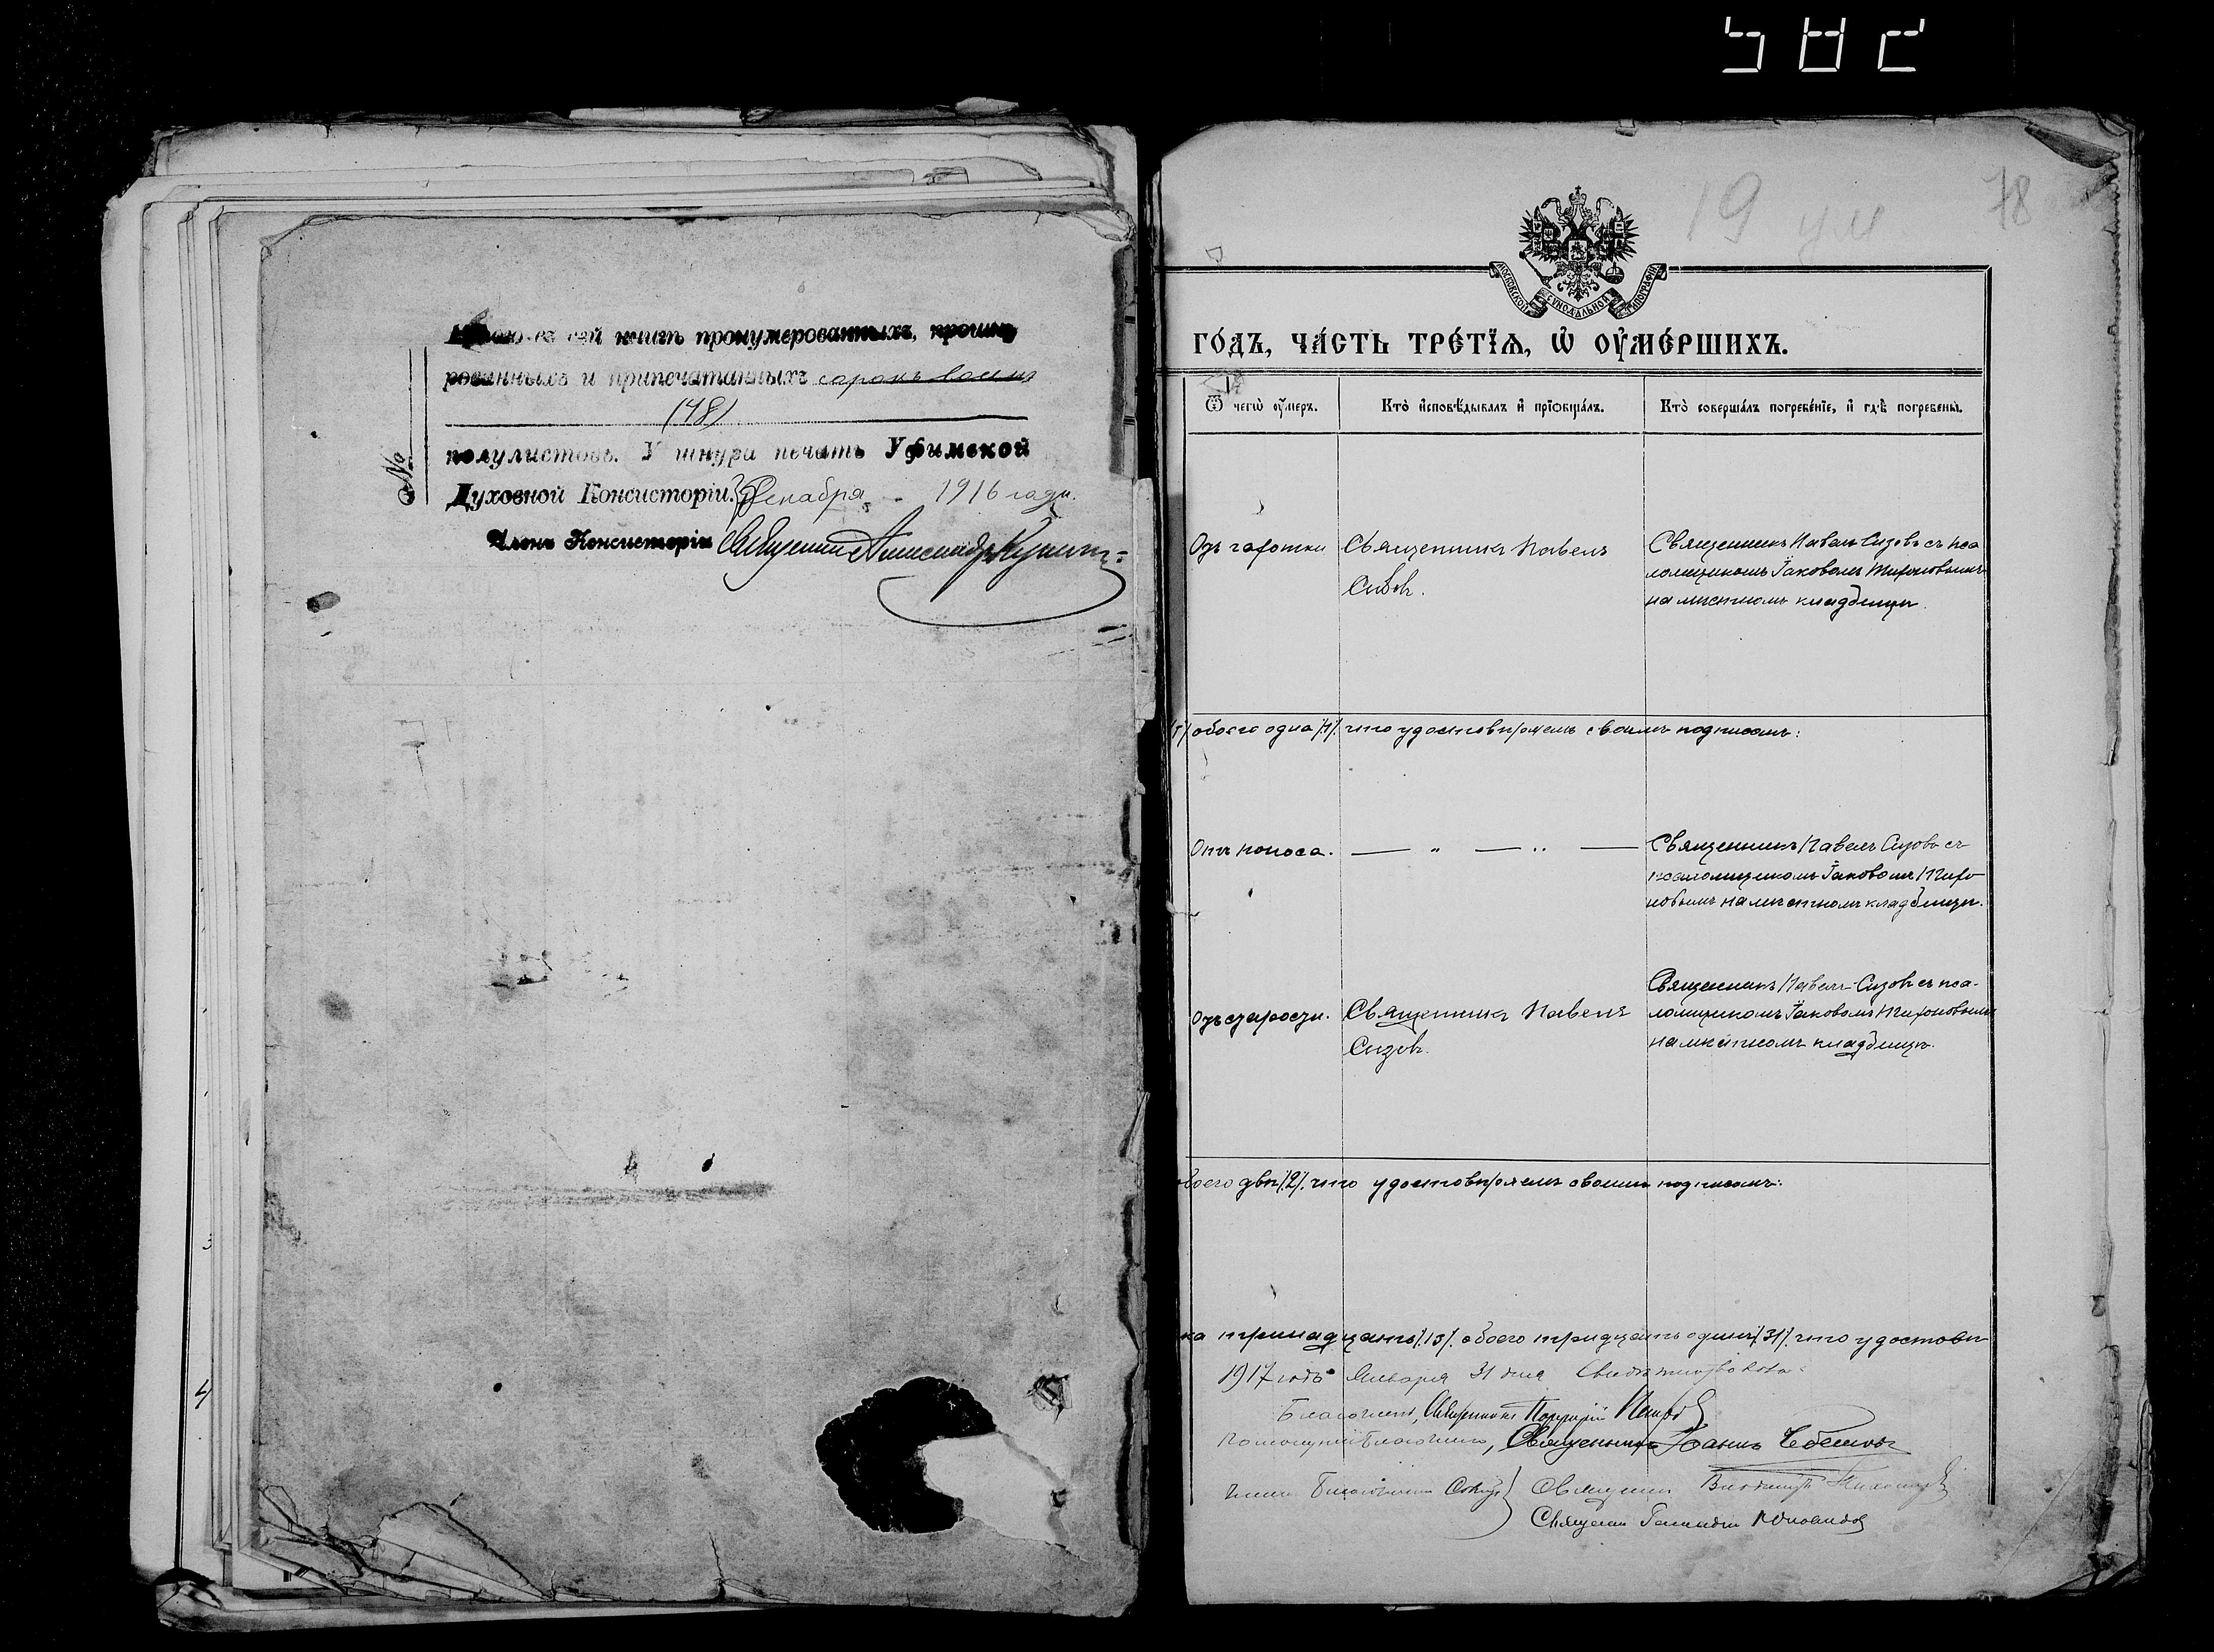 582
въ сей книгѣ пронумерованныхъ, прошну
рованныхъ и припечатанныхъ сорокъ восемь
(48)
полулистовъ. У шнура печать Уфимской
Духовной Консисторіи. Декабря 1916 года.
Членъ Консисторіи Священникъ Александръ
№
19
78
МОСКОВСКОЙ СѴНОДАЛЬНОЙ ТИПОГРАФІИ
ГО́ДЪ, ЧА́СТЬ ТРЕ́ТЇѦ, Ѡ҆ ОУ҆МЕ́РШИХЪ.
Ѿ чегѡ̀ оу҆́меръ.
Кто̀ и҆сповѣ́дывалъ и҆ прїѡбща́лъ.
Кто̀ соверша́лъ погребе́нїе, и҆ гдѣ̀ погребены̀.
Отъ чахотки
Священникъ Павелъ
Сизовъ.
Священникъ Павелъ Сизовъ съ пса
ломщикомъ Іаковомъ Тихоновымъ
на мѣстномъ кладбищѣ.
обоего одна /1/. что удостовѣряемъ своимъ подписомъ:
Отъ поноса.
— „ — „ —
Священникъ Павелъ Сизовъ съ
псаломщикомъ Іаковомъ Тихо-
новымъ на мѣстномъ кладбищѣ.
Отъ старости.
Священникъ Павелъ
Сизовъ.
Священникъ Павелъ Сизовъ съ пса-
ломщикомъ Іаковомъ Тихоновымъ
на мѣстномъ кладбищѣ.
обоего двѣ /2/. что удостовѣряемъ своимъ подписомъ:
ка тринадцать /13/. обоего тридцать одинъ /31/. что удостовѣ
1917 годъ Января 31 дня Свидѣтельствовали:
Благочинный, Священникъ
Помощникъ Благочиннаго, Священникъ Іоаннъ
Члены Благочинн. Совѣта Священникъ
Священникъ Геннадій